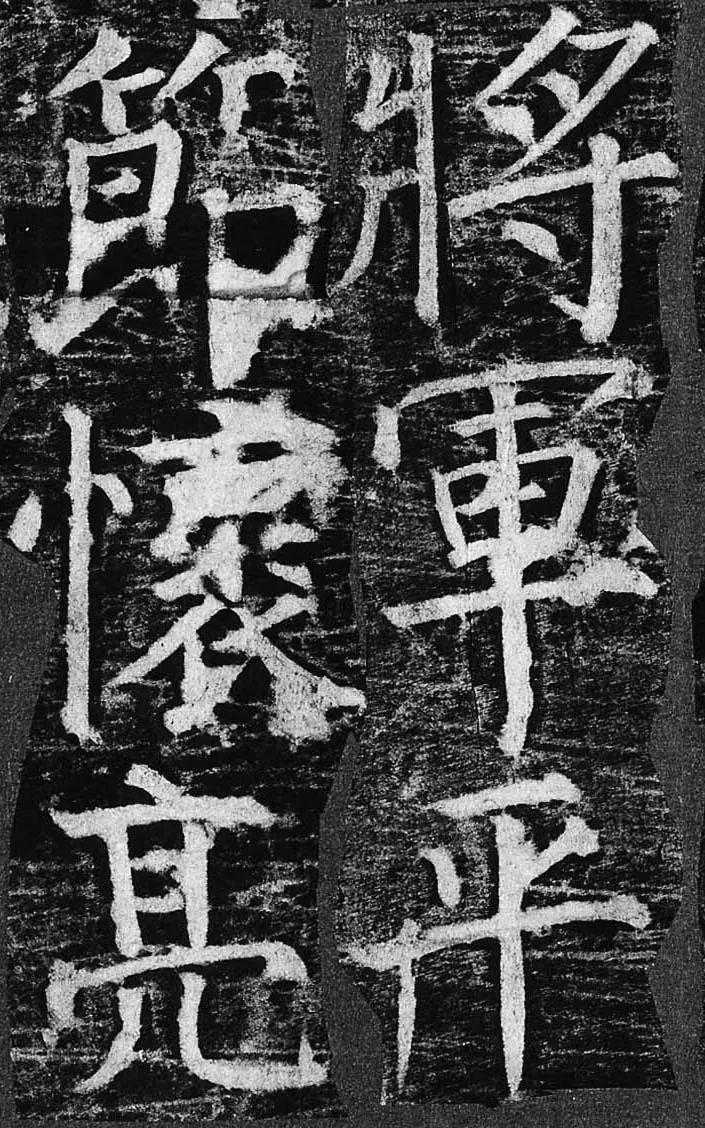 將軍平
節懷亮